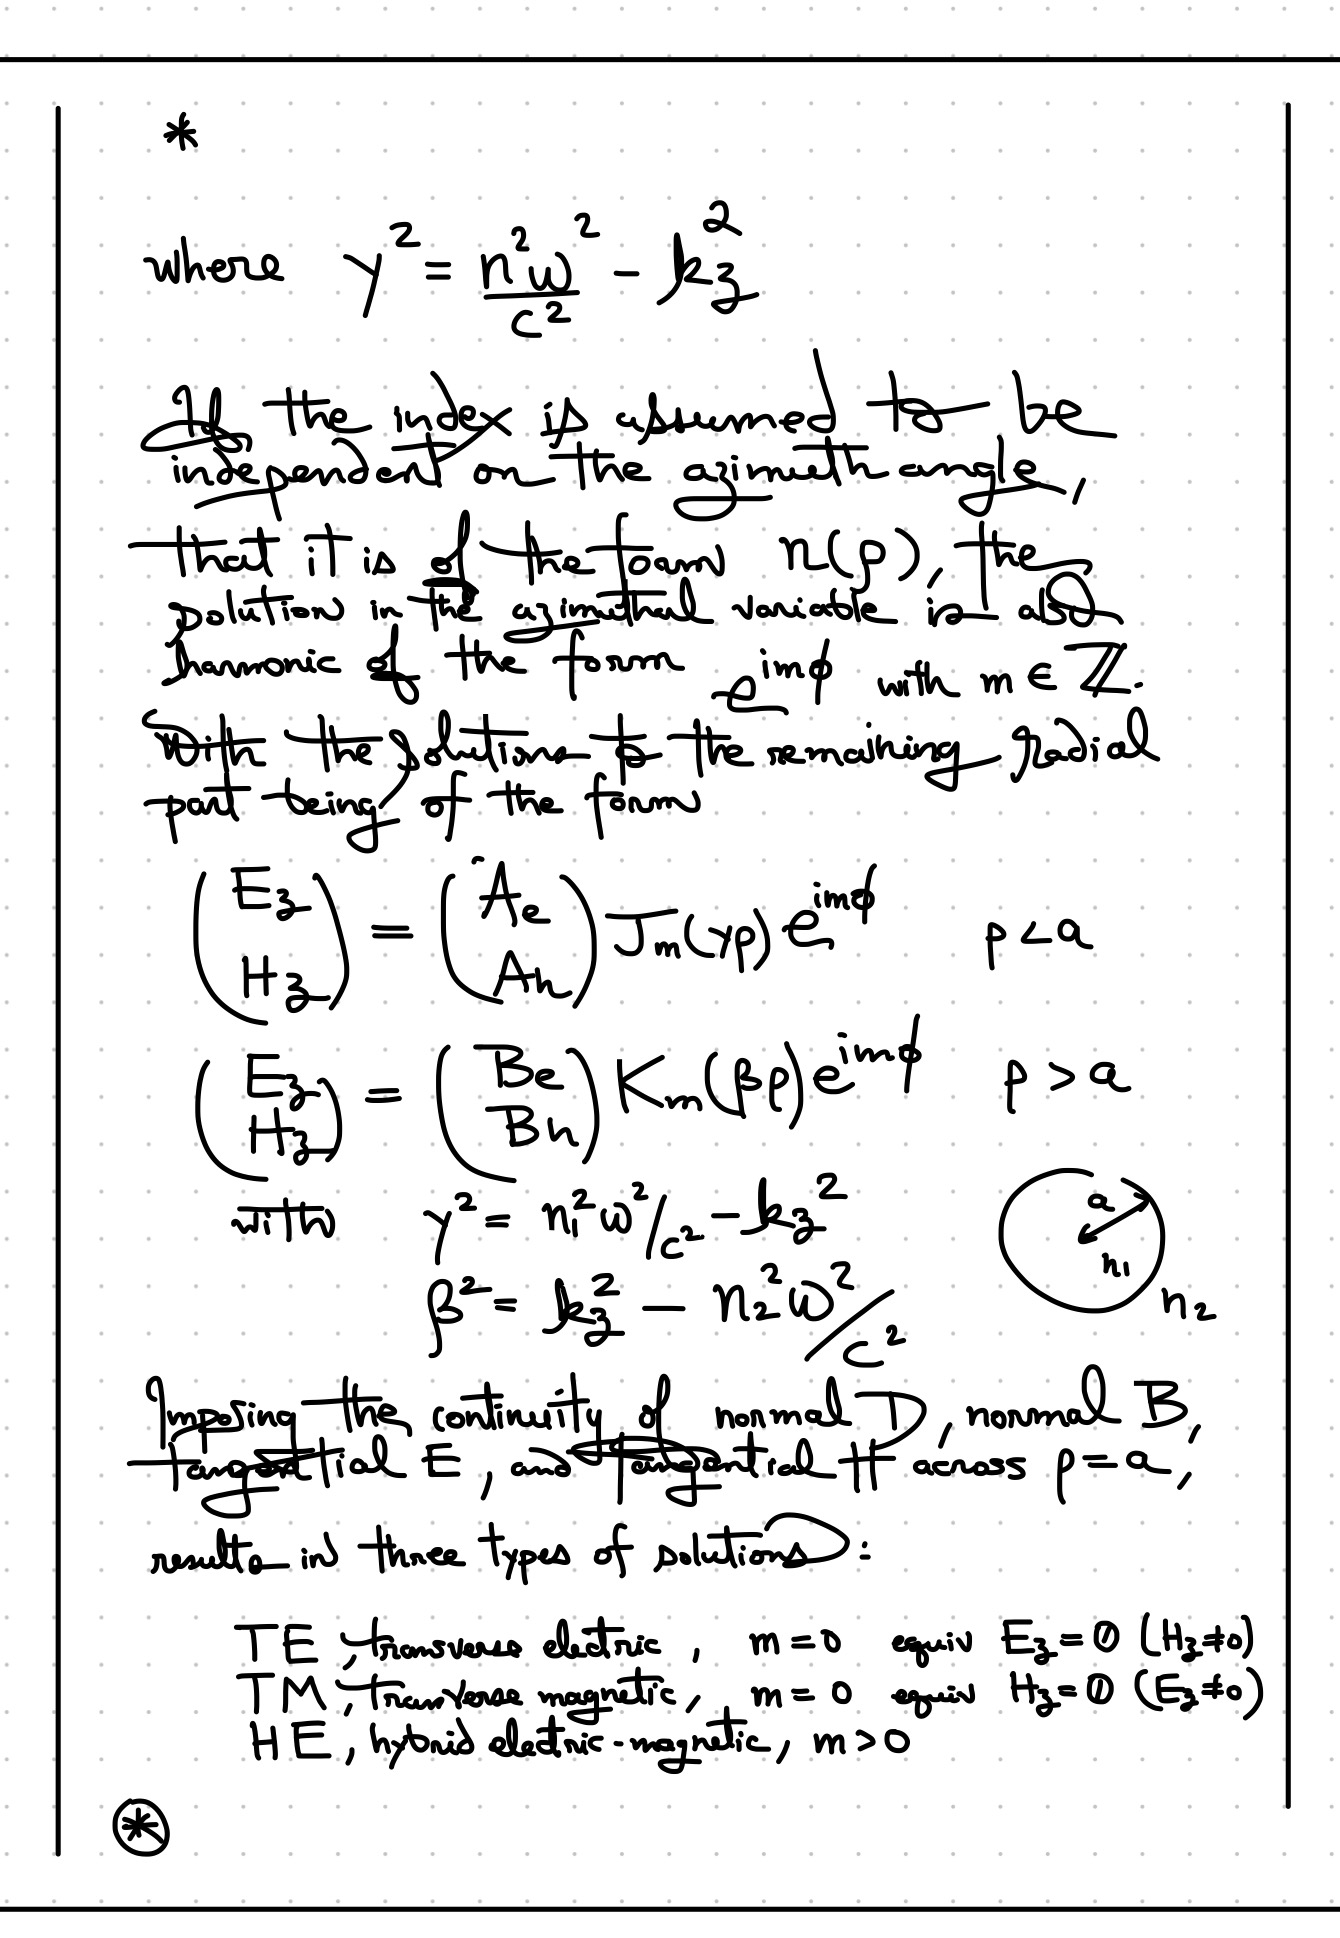 *
where γ² = n²ω²/c² - k_z²
If the index is assumed to be
independent on the azimuth angle,
that it is of the form n(ρ), the
solution in the azimuthal variable is also
harmonic of the form e^{imφ} with m ∈ ℤ.
With the solutions to the remaining radial
part being of the form
(E_z H_z) = (A_e A_h) J_m(γρ) e^{imφ} ρ < a
(E_z H_z) = (B_e B_h) K_m(βρ) e^{imφ} ρ > a
with γ² = n₁²ω²/c² - k_z²
a
n₁
n₂
β² = k_z² - n₂²ω²/c²
Imposing the continuity of normal D, normal B,
tangential E, and tangential H across ρ=a,
results in three types of solutions:
TE, transverse electric, m=0 equiv E_z=0 (H_z≠0)
TM, transverse magnetic, m=0 equiv H_z=0 (E_z≠0)
HE, hybrid electric-magnetic, m>0
*